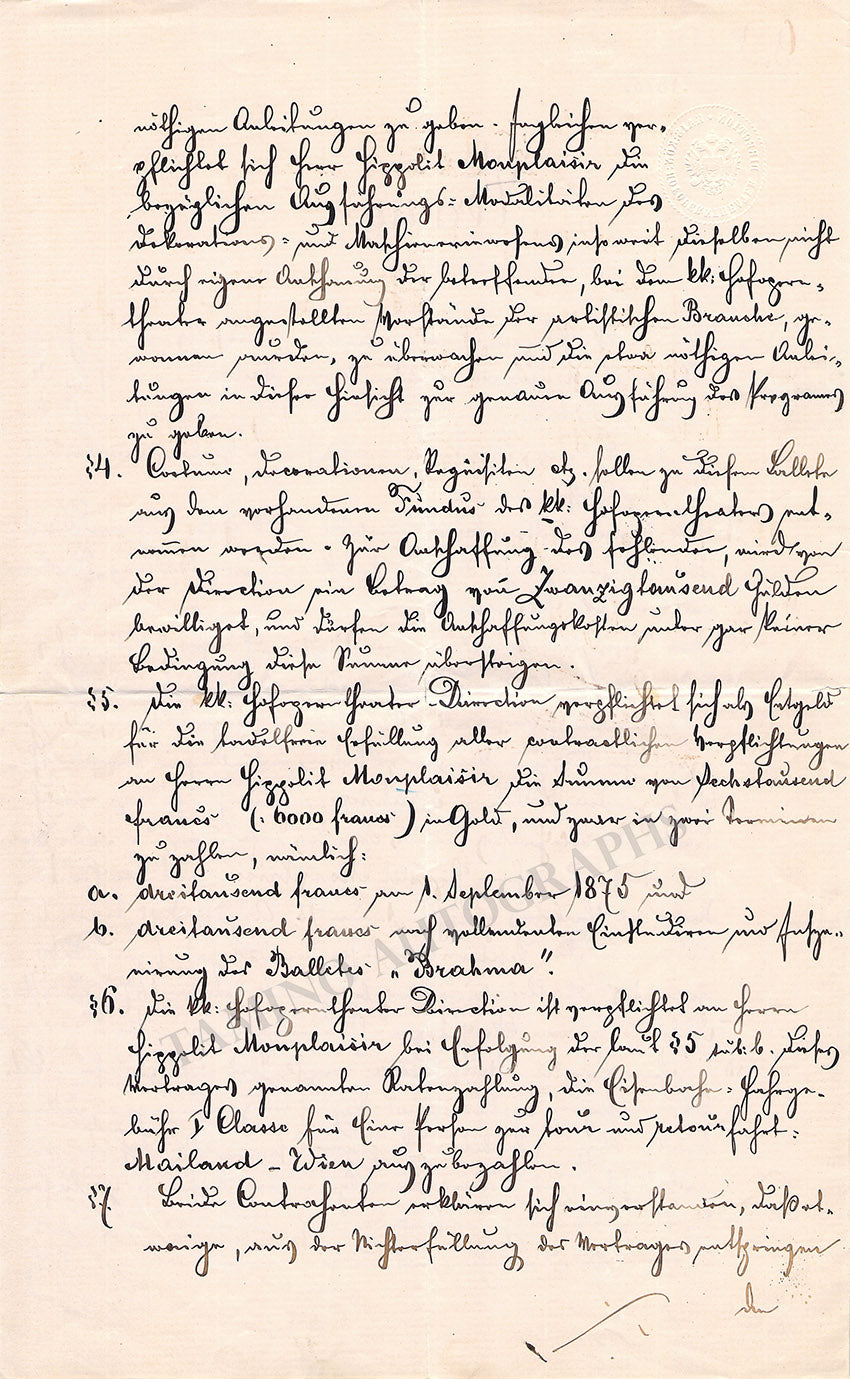 nöthigen Anleitungen zu geben. Ingleichen ver-
pflichtet sich Herr Hippolit Monplaisir die
bezüglichen Ausführungs-Modalitäten des
Dekorations- und Maschineriewesens insoweit dieselben nicht
durch eigene Anschauung der betreffenden, bei dem kk: Hofopern-
theater angestellten Vorstände der artistischen Branche, ge-
wonnen wurden, zu überwachen und die etwa nöthigen Anlei-
tungen in dieser Hinsicht zur genauen Ausführung des Programes
zu geben.
§4. Costume, Decorationen, Requisiten etz. sollen zu diesem Ballete
aus dem vorhandenen Fundus des kk: Hofoperntheaters ent-
nommen werden. Zur Anschaffung des fehlenden, wird von
der Direction ein Betrag von Zwanzigtausend Gulden
bewilliget, und dürfen die Anschaffungskosten unter gar keiner
Bedingung diese Summe übersteigen.
§5. Die kk: Hofoperntheater-Direction verpflichtet sich als Entgeld
für die tadelfreie Erfüllung aller contractlichen Verpflichtungen
an Herrn Hippolit Monplaisir die Summe von Sechstausend
francs (: 6000 francs) in Gold, und zwar in zwei Terminen
zu zahlen, nämlich:
a. dreitausend francs am 1. September 1875 und
b. dreitausend francs nach vollendeten Einstudiren und Insze-
nirung des Balletes „Brahma".
§6. Die kk: Hofoperntheater Direction ist verpflichtet an Herrn
Hippolit Monplaisir bei Erfolgung der laut §5 sub: b. dieses
Vertrages genannten Ratenzahlung, die Eisenbahn-Fahrge-
bühr I Classe für Eine Person zur tour und retourfahrt:
Mailand – Wien auszubezahlen.
§7. Beide Contrahenten erklären sich einverstanden, daß et-
waige, aus der Nichterfüllung des Vertrages entspringen
den
TAMINO AUTOGRAPHS